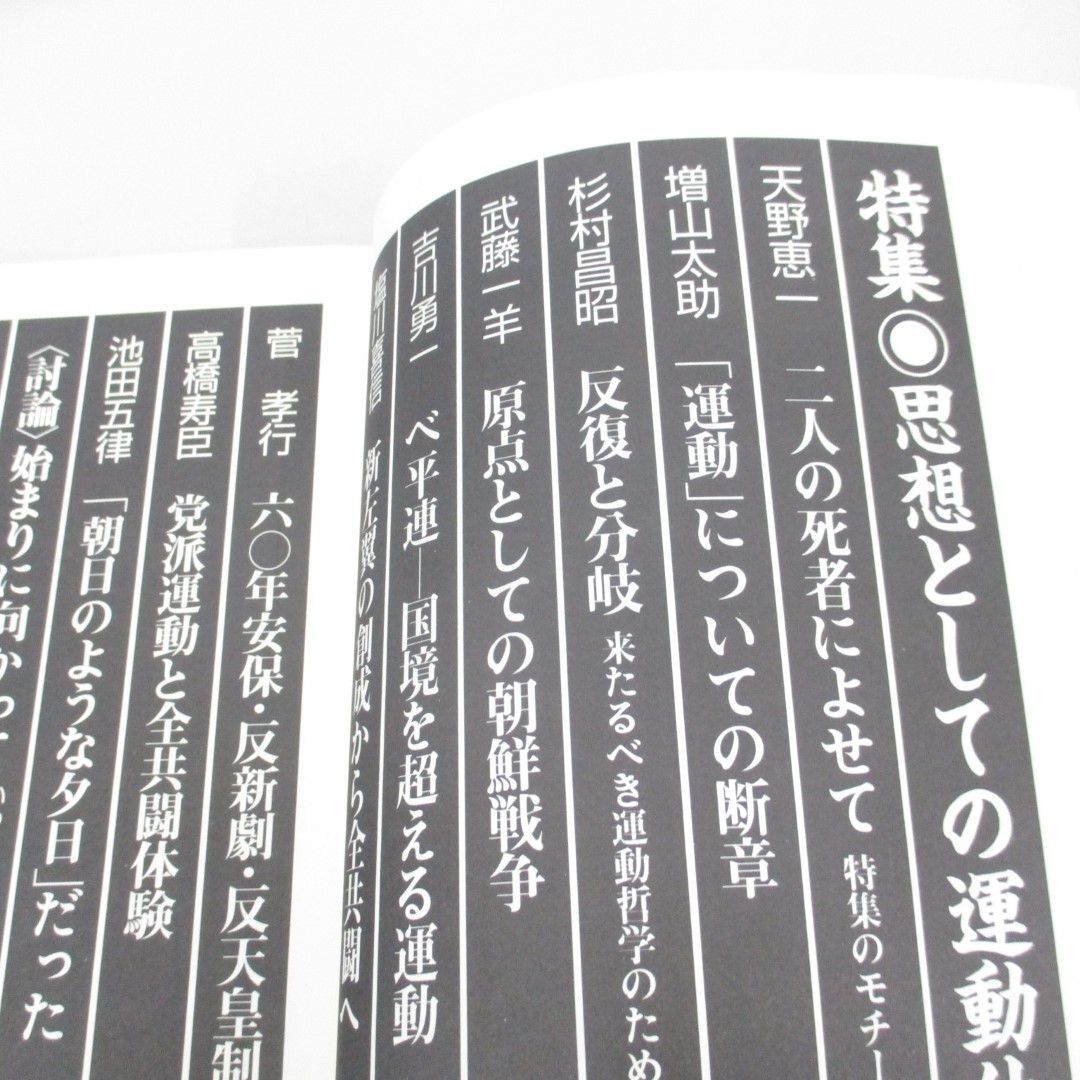 特集◎思想としての運動
天野恵一 二人の死者によせて 特集のモチー
増山太助 「運動」についての断章
杉村昌昭 反復と分岐 来たるべき運動哲学のため
武藤一羊 原点としての朝鮮戦争
吉川勇一 ベ平連―国境を超える運動
塩川喜信 新左翼の創成から全共闘へ
菅孝行 六〇年安保・反新劇・反天皇制
高橋寿臣 党派運動と全共闘体験
池田五律 「朝日のような夕日」だった
〈討論〉始まりに向かって